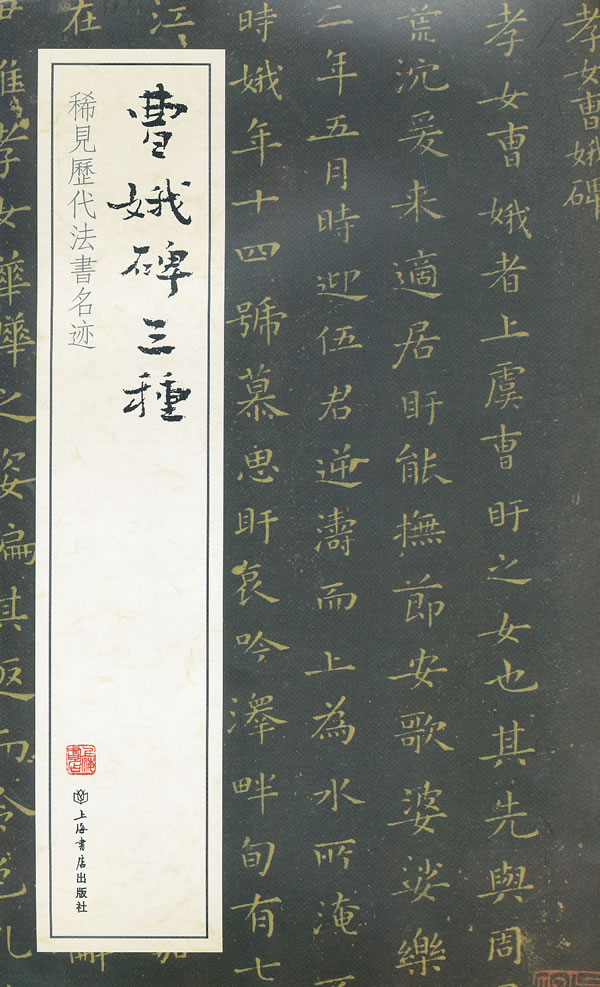 孝女曹娥碑
孝女曹娥者上虞曹盱之女也其先與周
荒沉爰来適居盱能撫節安歌婆娑樂
二年五月時迎伍君逆濤而上為水所淹
時娥年十四號慕思盱哀吟澤畔旬有七
江
曹娥碑三種
稀見歷代法書名迹
上海書店
上海書店出版社
在
惟孝女曄曄之姿偏其返而令色孔